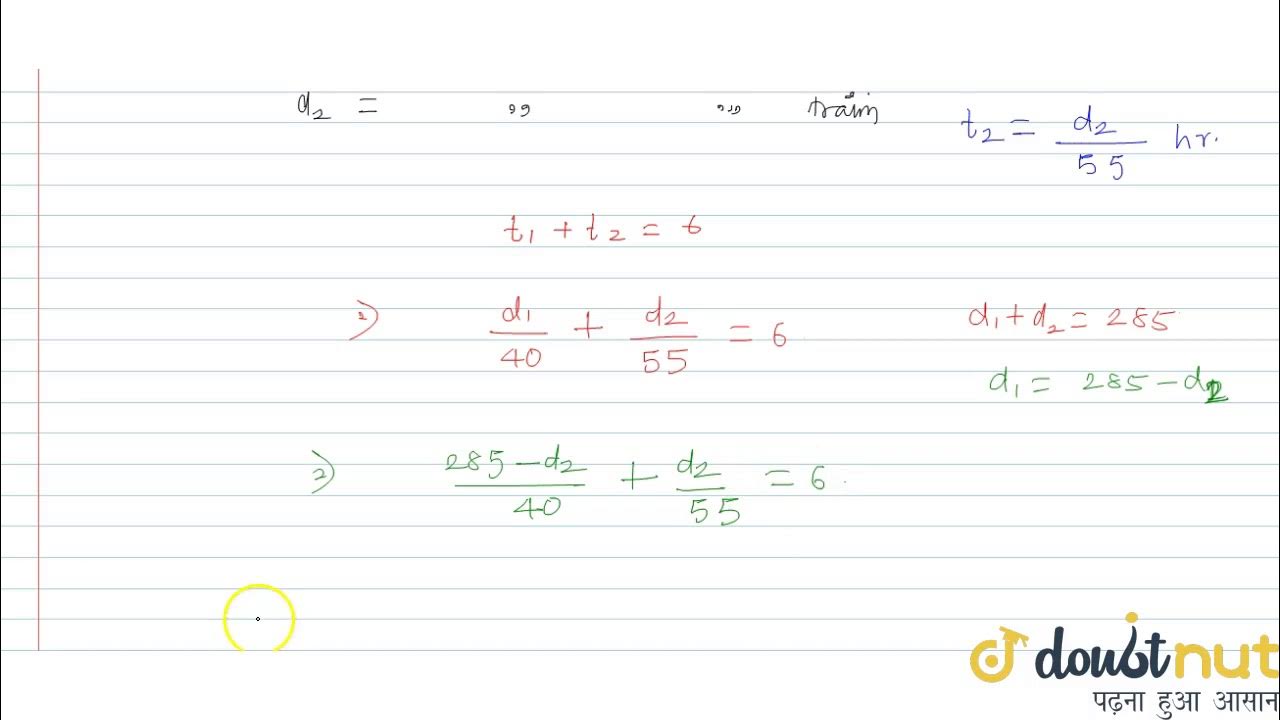 d₂ = ,, ,, train
t₂ = d₂/55 hr.
t₁ + t₂ = 6
⇒ d₁/40 + d₂/55 = 6
d₁ + d₂ = 285
d₁ = 285 - d₂
⇒ (285 - d₂)/40 + d₂/55 = 6
doubtnut
पढ़ना हुआ आसान